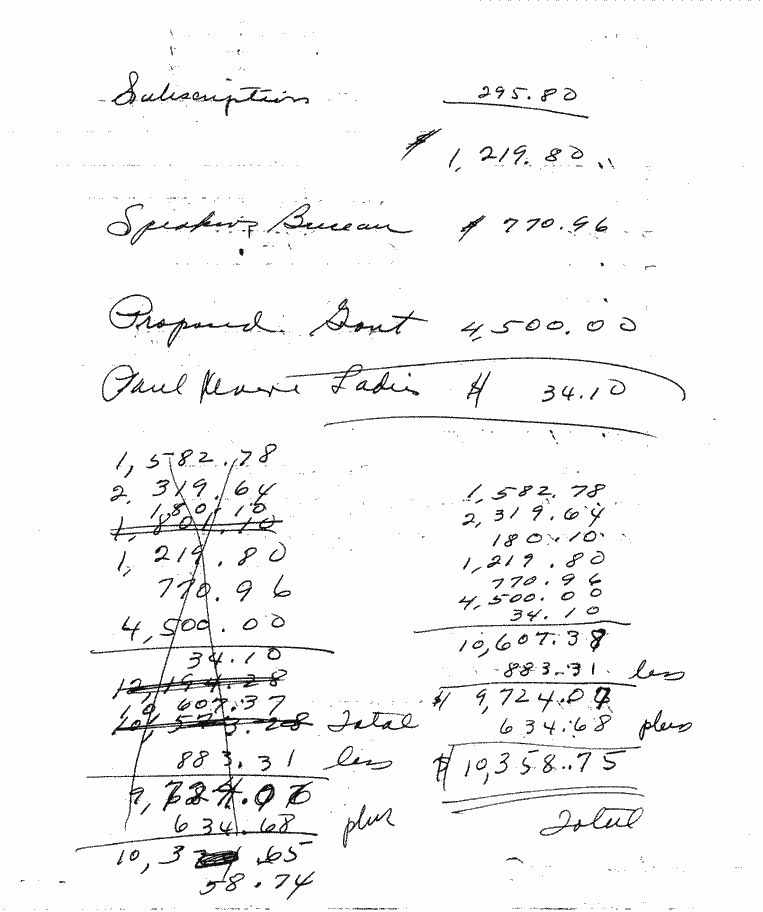 Subscription 295.80
$ 1,219.80
Speaking Bureau $ 770.96
Proposed Govt 4,500.00
Paul Revere Ladies $ 34.10
1,582.78
2,319.64
180.10
1,801.10
1,219.80
770.96
4,500.00
34.10
12,194.28
10,607.37
10,573.28 Total
883.31 less
9,724.06
634.68 plus
10,3 .65
58.74
1,582.78
2,319.64
180.10
1,219.80
770.96
4,500.00
34.10
10,607.38
883.31 less
$ 9,724.07
634.68 plus
$ 10,358.75
Total